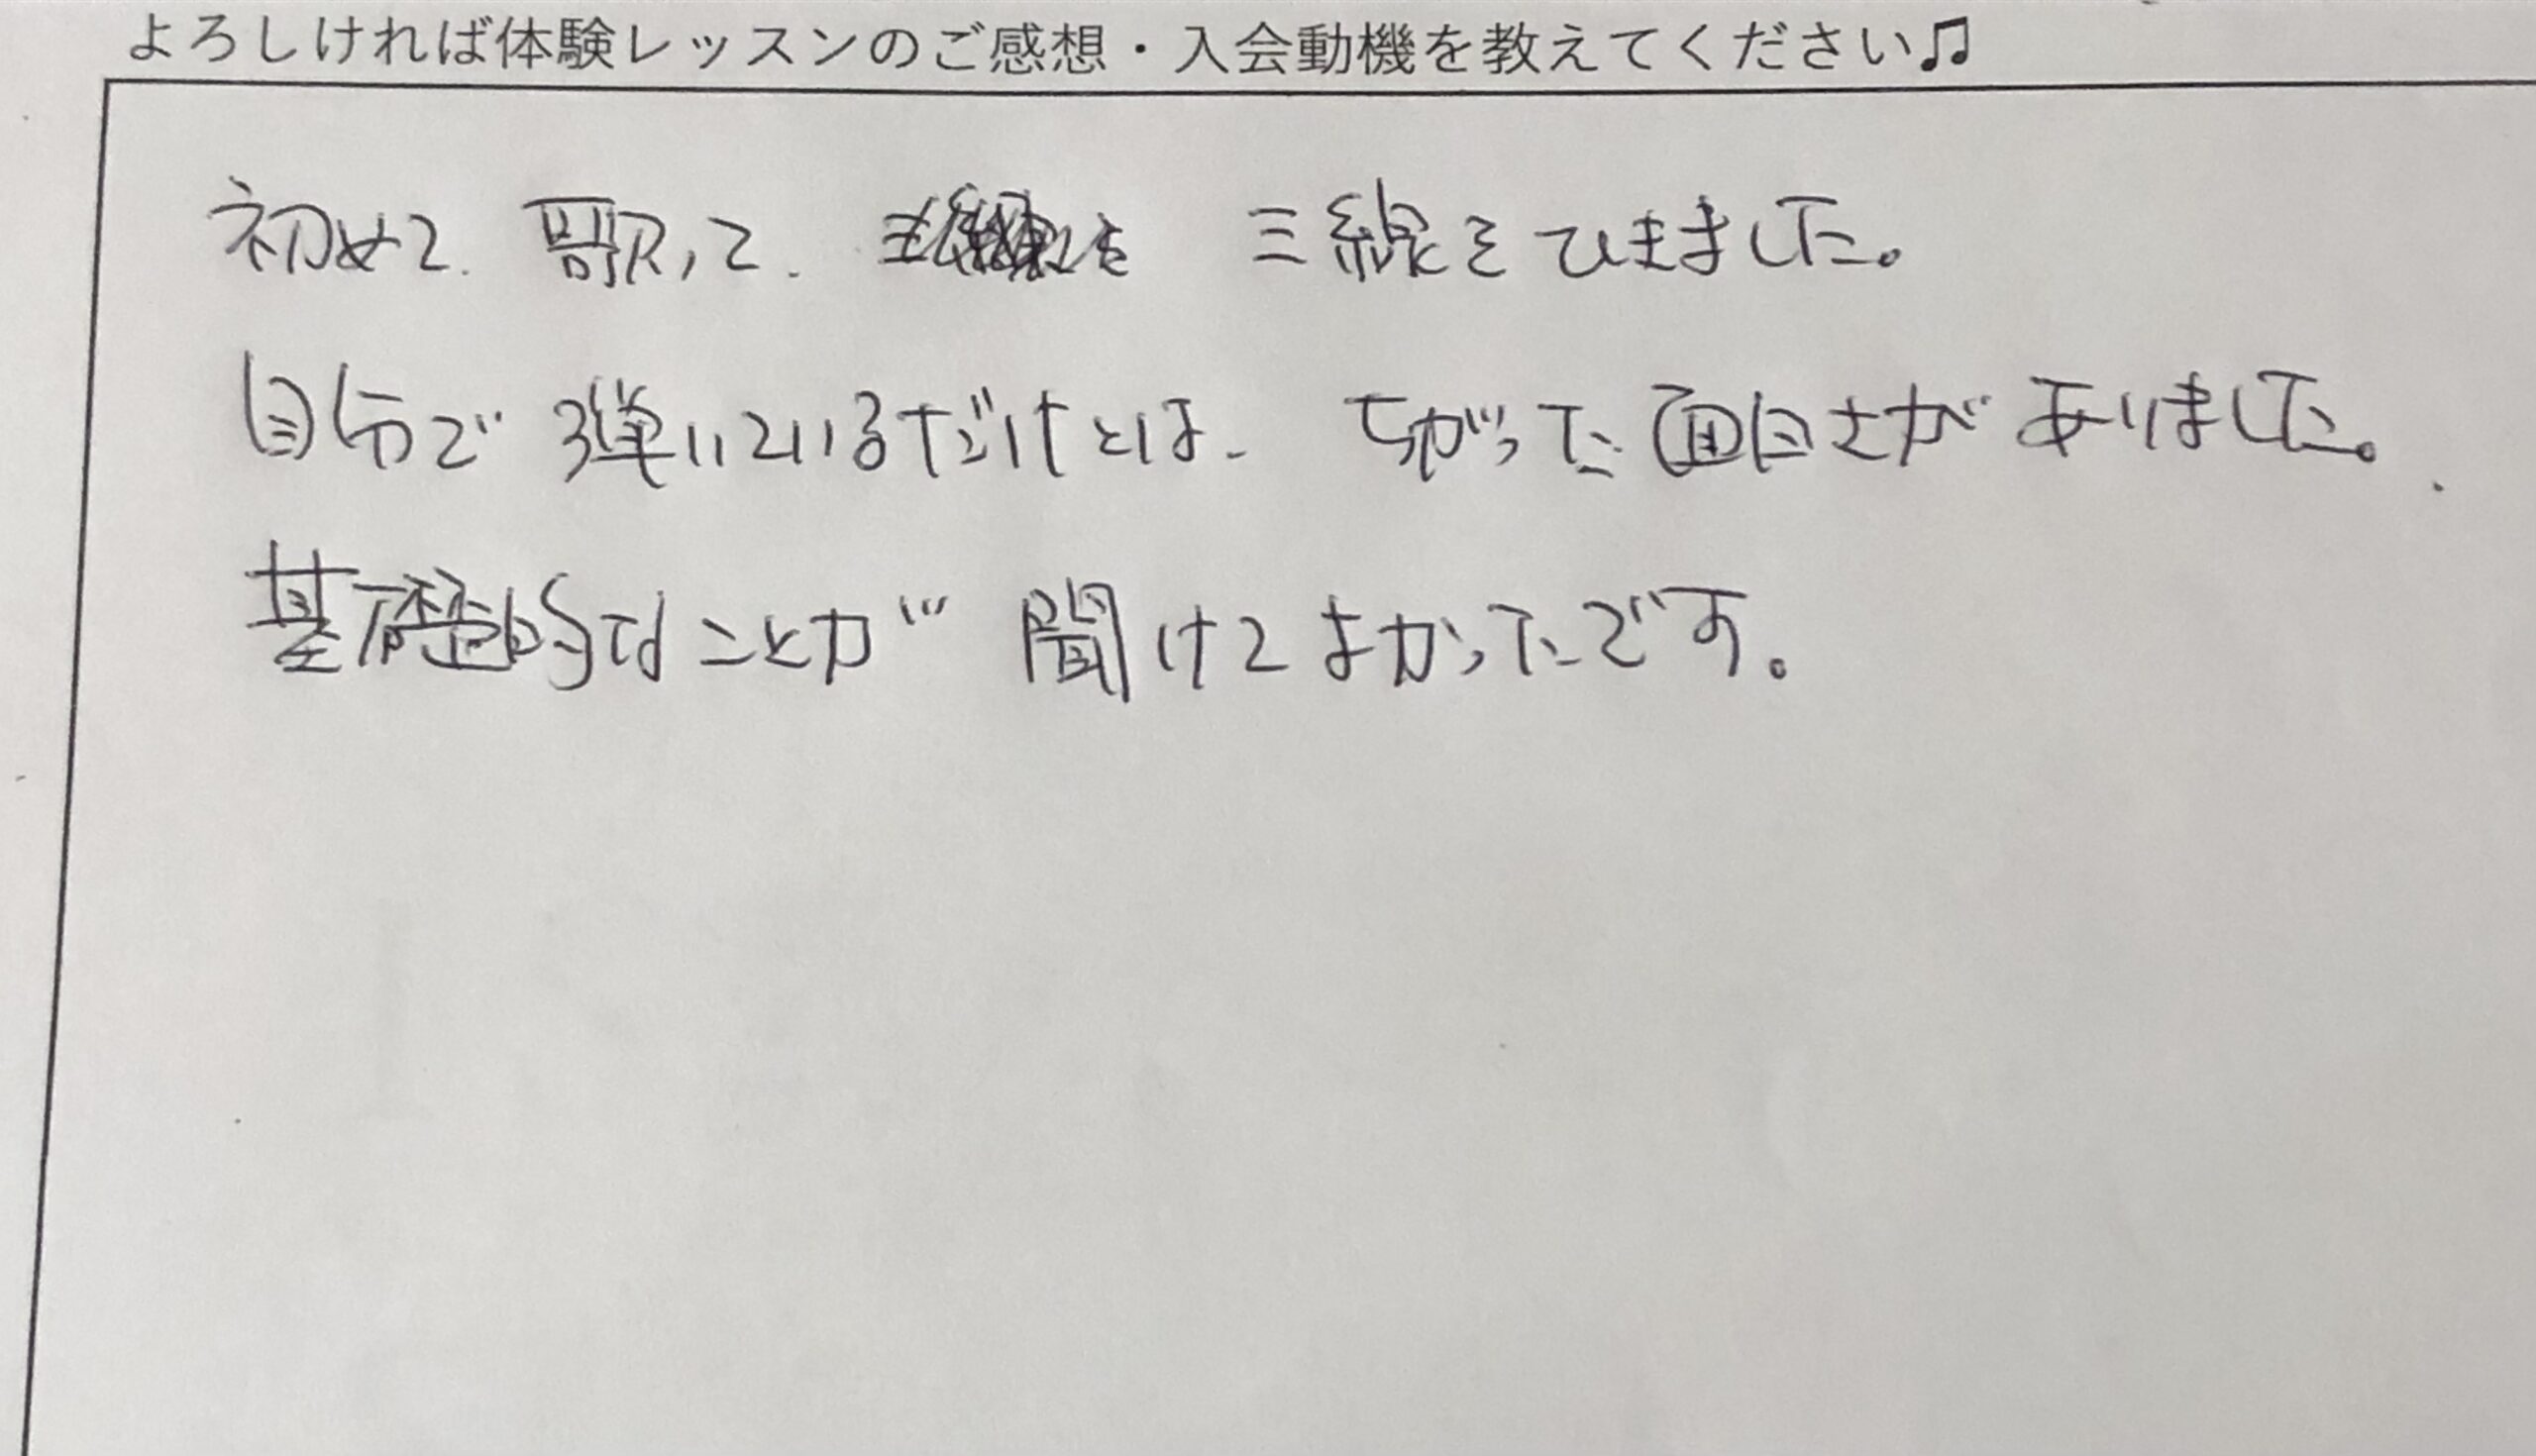 よろしければ体験レッスンのご感想・入会動機を教えてください♫
初めて、歌って、三線をひきました。
自分で弾いているだけとは、ちがった面白さがありました。
基礎的なことが聞けてよかったです。